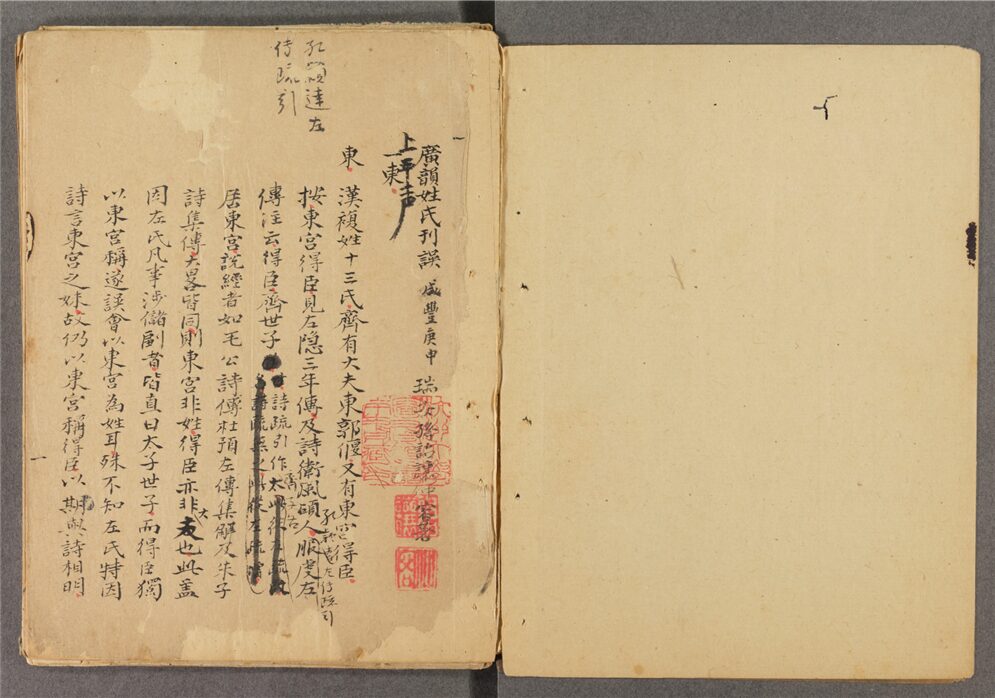 廣韻姓氏刊誤 咸豐庚申 瑞安孫詒讓仲容著
上平声
一東
東 漢複姓十三氏齊有大夫東郭偃又有東宮得臣
按東宮得臣見左隐三年傳及詩衛風碩人服虔左
傳注云得臣齊世子
詩疏引作
居東宮說經者如毛公詩傳杜預左傳集解及朱子
詩集傳大畧皆同則東宮非姓得臣亦非大夫也此蓋
因左氏凡事涉儲副者皆直曰大子世子而得臣獨
以東宮稱遂誤會以東宮為姓耳殊不知左氏特因
詩言東宮之妹故仍以東宮稱得臣以期與詩相明
孔穎達左
傳疏引
孔穎達左傳疏引